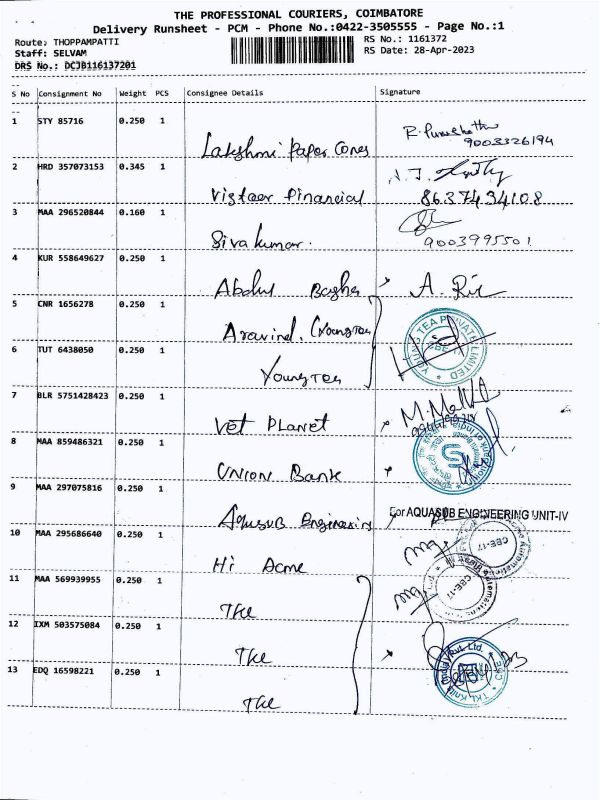 THE PROFESSIONAL COURIERS, COIMBATORE
Delivery Runsheet - PCM - Phone No.:0422-3505555 - Page No.:1
Route: THOPPAMPATTI RS No.: 1161372
Staff: SELVAM RS Date: 28-Apr-2023
DRS No.: DCJB116137201
S No Consignment No Weight PCS Consignee Details Signature
1 STY 85716 0.250 1
Lakshmi Paper Cones 9003326194
2 HRD 357073153 0.345 1
Vistaar Financial 8637434108
3 MAA 296520844 0.160 1
Sivakumar. 9003995501
4 KUR 558649627 0.250 1
Abdul
5 CNR 1656278 0.250 1
Aravind. (Young Tea
YOUNG TEA PRIVATE LIMITED
6 TUT 6438050 0.250 1
Young Tea
7 BLR 5751428423 0.250 1
Vet Planet
8 MAA 859486321 0.250 1
Union Bank
9 MAA 297075816 0.250 1
Aquasub Engineering For AQUASUB ENGINEERING UNIT-IV
10 MAA 295686640 0.250 1
Hi Acme
CBE-17
11 MAA 569939955 0.250 1
TKL
CBE-17
12 IXM 503575084 0.250 1
TKL
13 EDQ 16598221 0.250 1
TKL